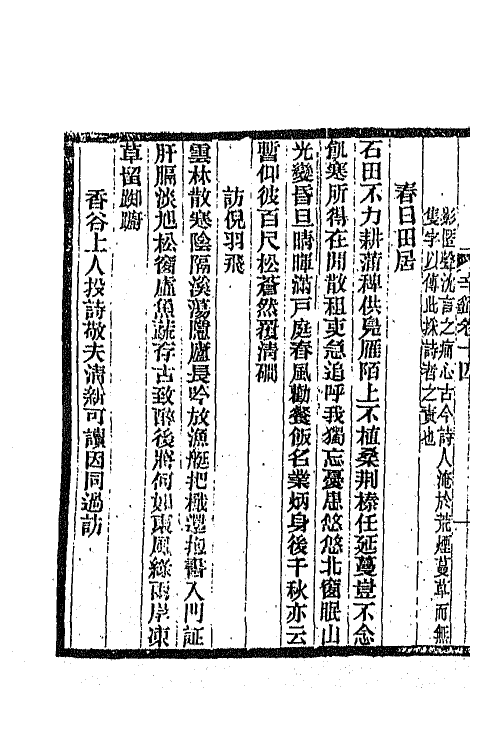 影匿聲沈言之痛心古今詩人淹於荒煙蔓草而無
隻字以傳此採詩者之責也
春日田居
石田不力耕菰稗供鳧雁陌上不植桑荆榛任延蔓豈不念
飢寒所得在閒散租吏急追呼我獨忘憂患悠悠北窗眠山
光變昏旦晴暉滿戸庭春風勸餐飯名業炳身後千秋亦云
暫仰彼百尺松蒼然覆清磵
訪倪羽飛
雲林散寒陰隔溪蕩鷹廬長吟放漁艇把檝還抱書入門証
肝膈淡旭松窗虛魚蔬存古致醉後將何如東風綠兩岸凍
草留踟躕
香谷上人投詩敬夫清新可讀因同過訪